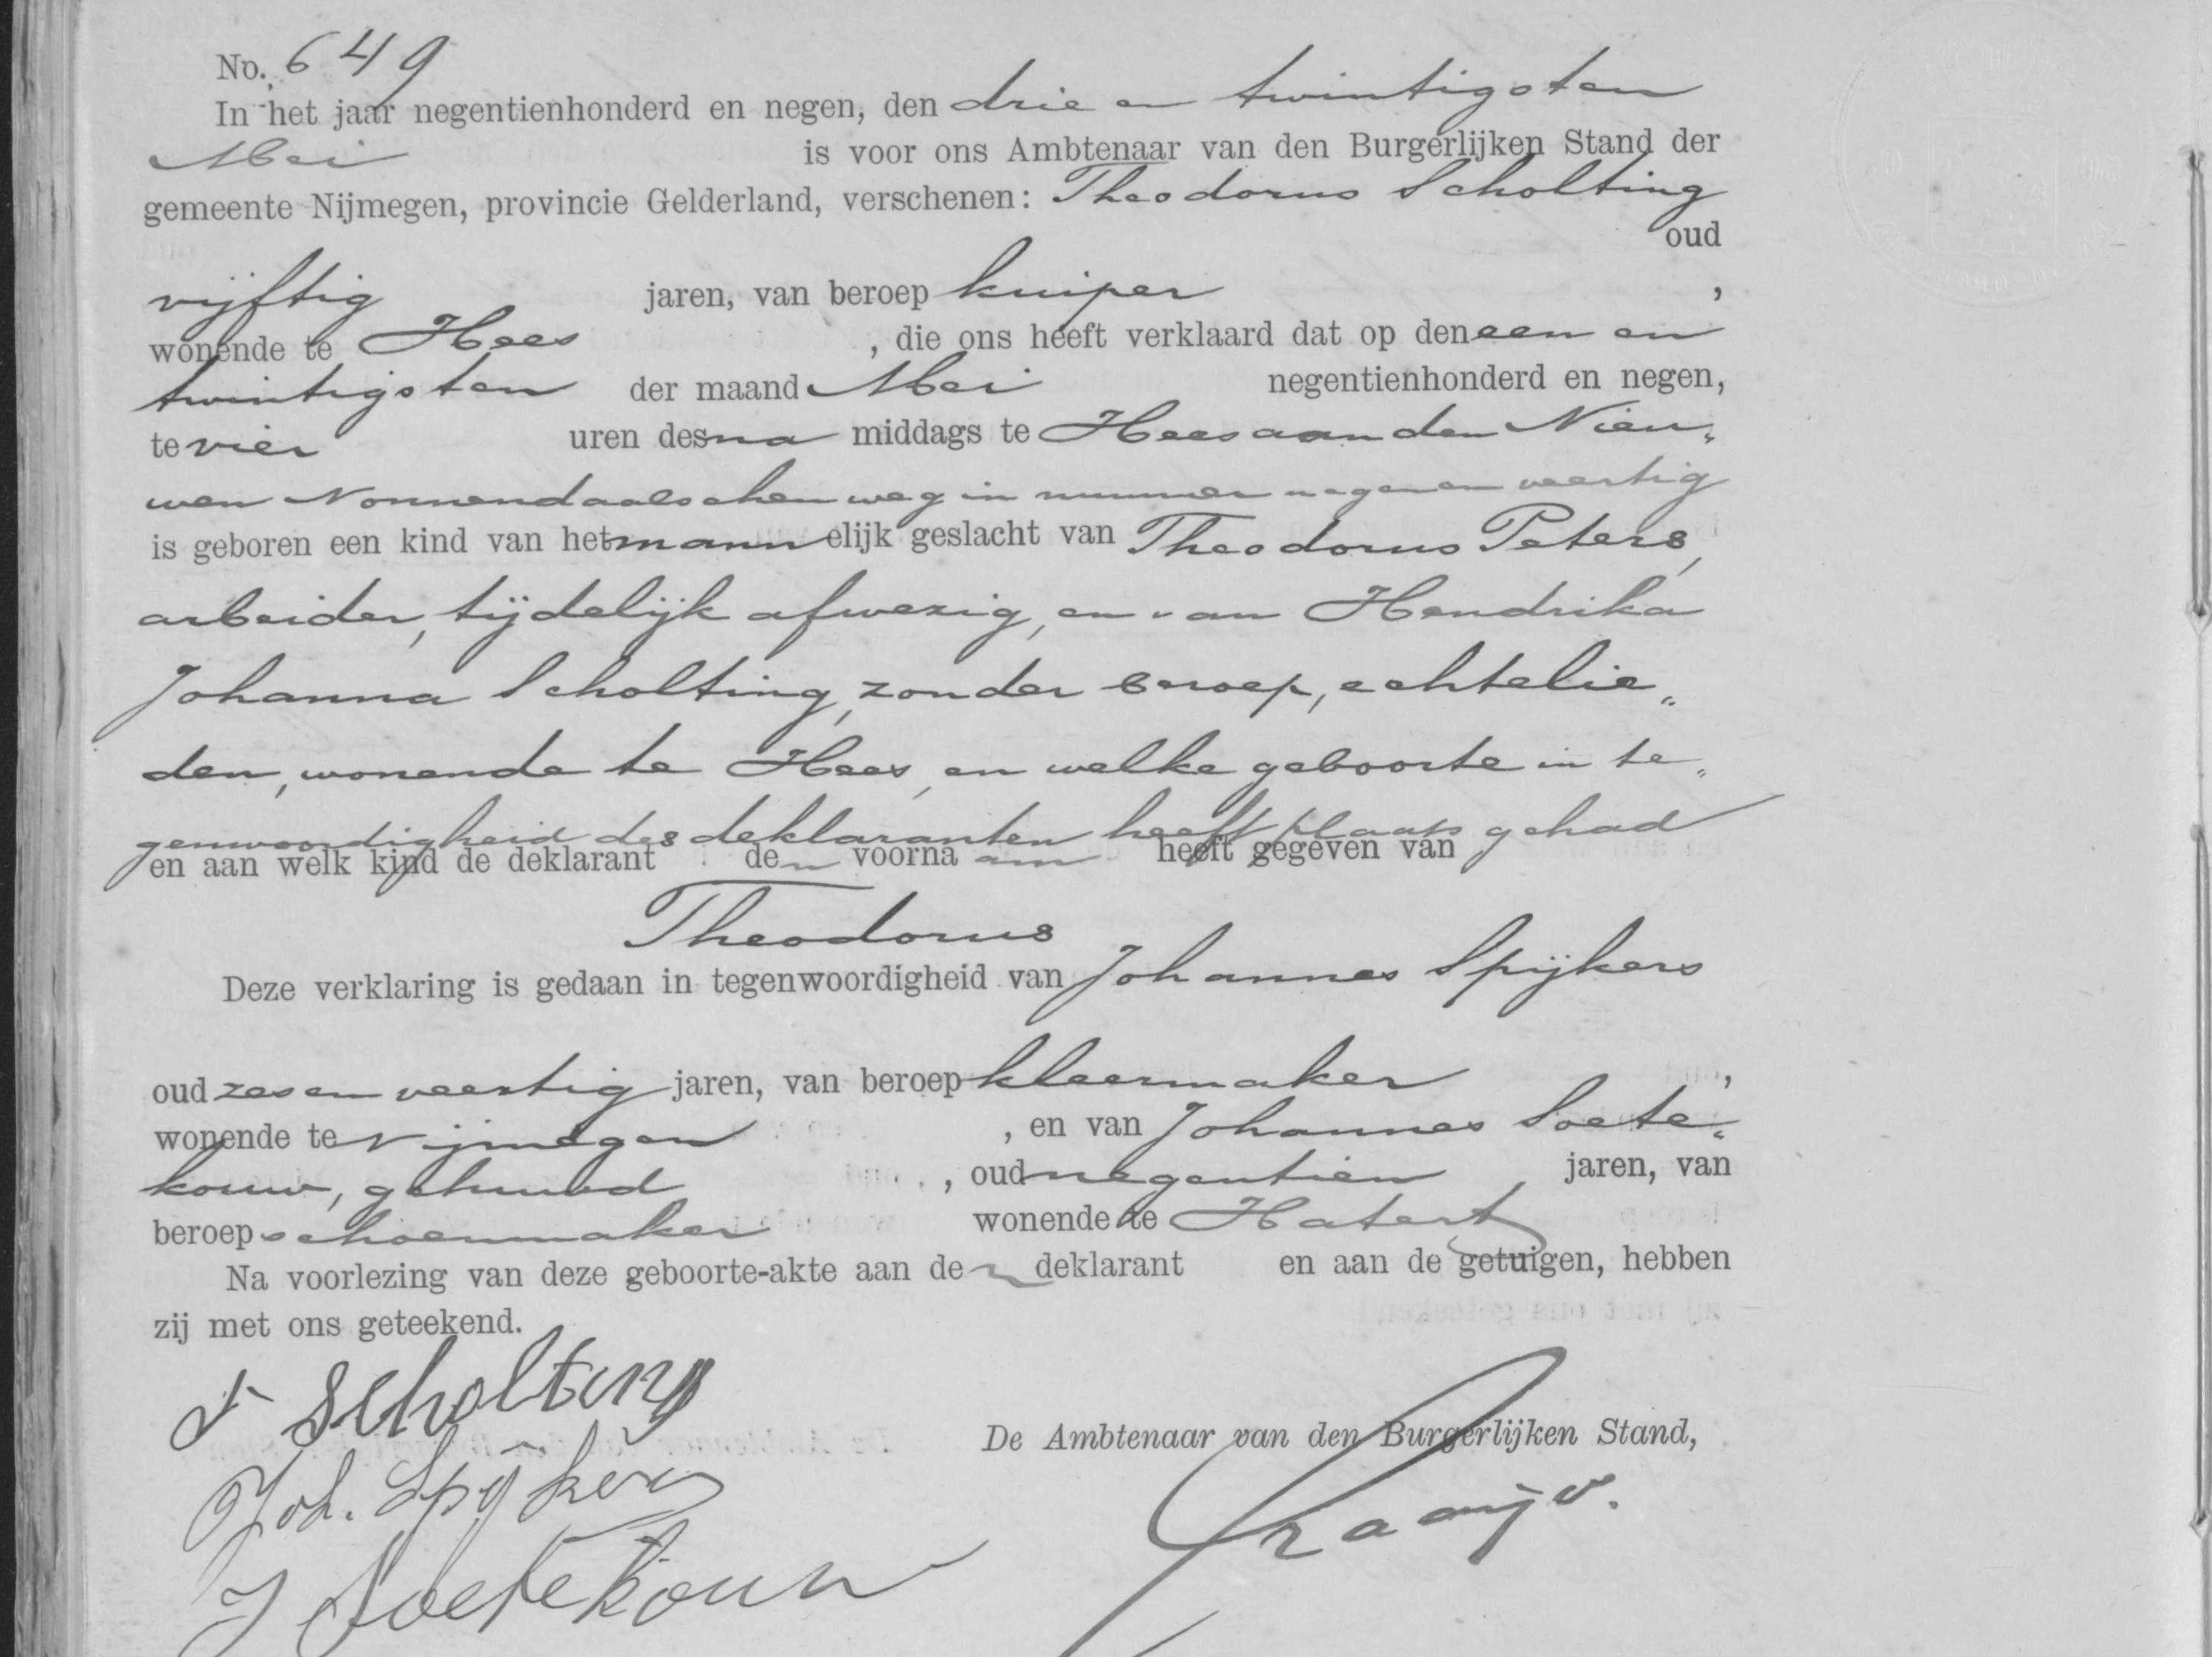 No. 649
In het jaar negentienhonderd en negen, den drie en twintigsten
Mei is voor ons Ambtenaar van den Burgerlijken Stand der
gemeente Nijmegen, provincie Gelderland, verschenen: Theodorus Scholting
oud
vijftig jaren, van beroep kuiper ,
wonende te Hees , die ons heeft verklaard dat op den een en
twintigsten der maand Mei negentienhonderd en negen,
te vier uren des na middags te Hees aan den Nieu„
wen Nonnendaalschen weg in nummer negen en veertig
is geboren een kind van het mannelijk geslacht van Theodorus Peters,
arbeider, tijdelijk afwezig, en van Hendrika
Johanna Scholting, zonder beroep, echtelie„
den, wonende te Hees, en welke geboorte in te„
genwoordigheid des deklaranten heeft plaats gehad
en aan welk kind de deklarant den voornaam heeft gegeven van
Theodorus
Deze verklaring is gedaan in tegenwoordigheid van Johannes Spijkers
oud zes en veertig jaren, van beroep kleermaker ,
wonende te Nijmegen , en van Johannes Soete„
kouw, gehuwd , oud negentien jaren, van
beroep schoenmaker wonende te Hatert
Na voorlezing van deze geboorte-akte aan den deklarant en aan de getuigen, hebben
zij met ons geteekend.
T Scholting
De Ambtenaar van den Burgerlijken Stand,
Joh. Spijkers
J Soetekouw